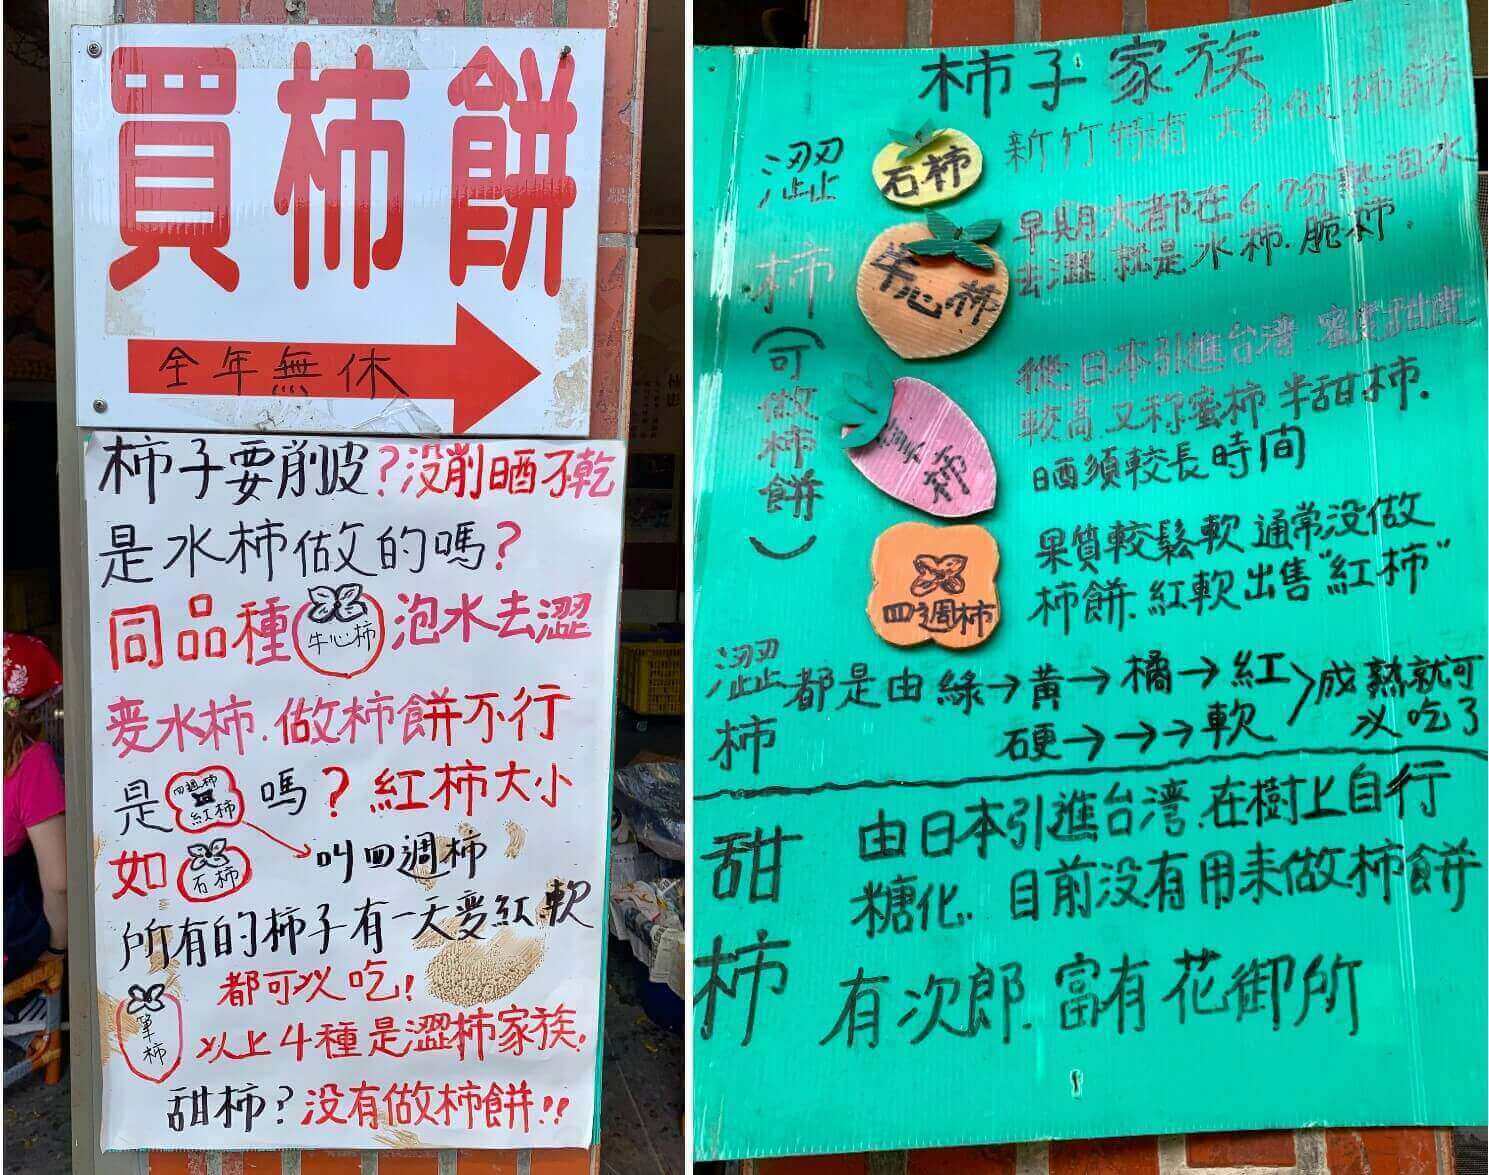 買柿餅
全年無休
柿子要削皮?沒削晒不乾
是水柿做的嗎?
同品種 牛心柿 泡水去澀
変水柿.做柿餅不行
是 四週柿 紅柿 嗎?紅柿大小
如 石柿 叫四週柿
所有的柿子有一天変紅軟
都可以吃!
筆柿 以上4種是澀柿家族.
甜柿?沒有做柿餅!!
柿子家族
澀柿(可做柿餅)
石柿
新竹特有 大多做柿餅
牛心柿
早期大都在6.7分熟泡水
去澀 就是水柿.脆柿.
筆柿
從日本引進台湾 蜜度甜度
較高 又称蜜柿 半甜柿.
晒須較長時間
四週柿
果質較鬆軟 通常没做
柿餅.紅軟出售"紅柿"
澀柿 都是由綠→黃→橘→紅>成熟就可
硬→→→軟 以吃了
甜柿
由日本引進台湾.在樹上自行
糖化.目前没有用来做柿餅
有次郎.富有 花御所